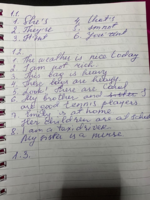 1.1.
1. She's 4. that's
2. They're 5. I'm not
3. It isn't 6. You aren't
1.2.
1. The weather is nice today
2. I am not rich.
3. This bag is heavy
4. These bags are heavy.
5. Look! There are Carol
6. My brother and I
are good tennis players
7. Emily is at home
Her children are at school
8. I am a taxi driver.
My sister is a nurse
1.3.